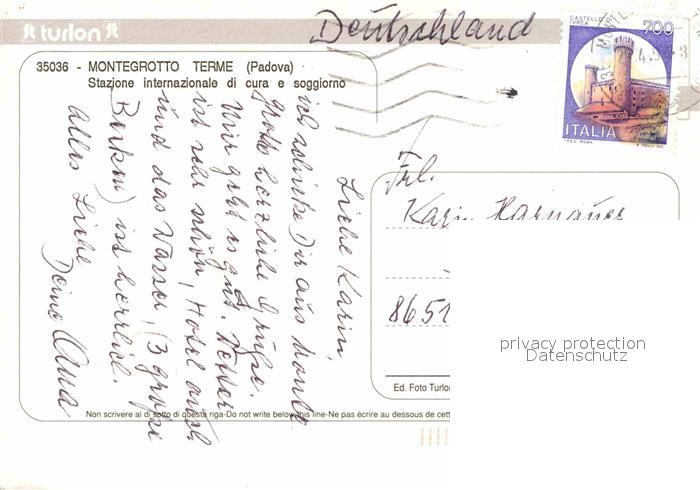 turlon
Deutschland
CASTELLO DI IVREA
700
ITALIA
I.P.Z.S. ROMA
35036 - MONTEGROTTO TERME (Padova)
Stazione internazionale di cura e soggiorno
Liebe Karin,
ich schicke Dir aus
große herzliche Grüße.
Mir geht es gut. Wetter
ist sehr schön, Hotel auch
und das Wasser, (3 große
Becken) ist herrlich.
Alles Liebe
Deine Oma
Frl.
Karin
8651
privacy protection
Datenschutz
Ed. Foto Turlon
Non scrivere al di sotto di questa riga-Do not write below this line-Ne pas écrire au dessous de cett